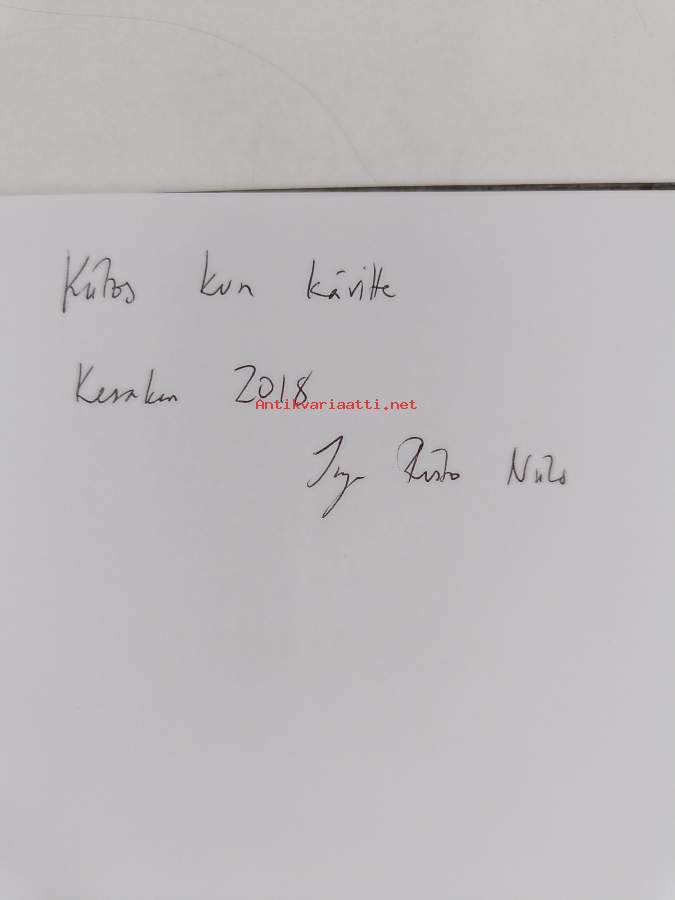 Kiitos kun kävitte
Kesäkuu 2018
Antikvariaatti.net
Risto